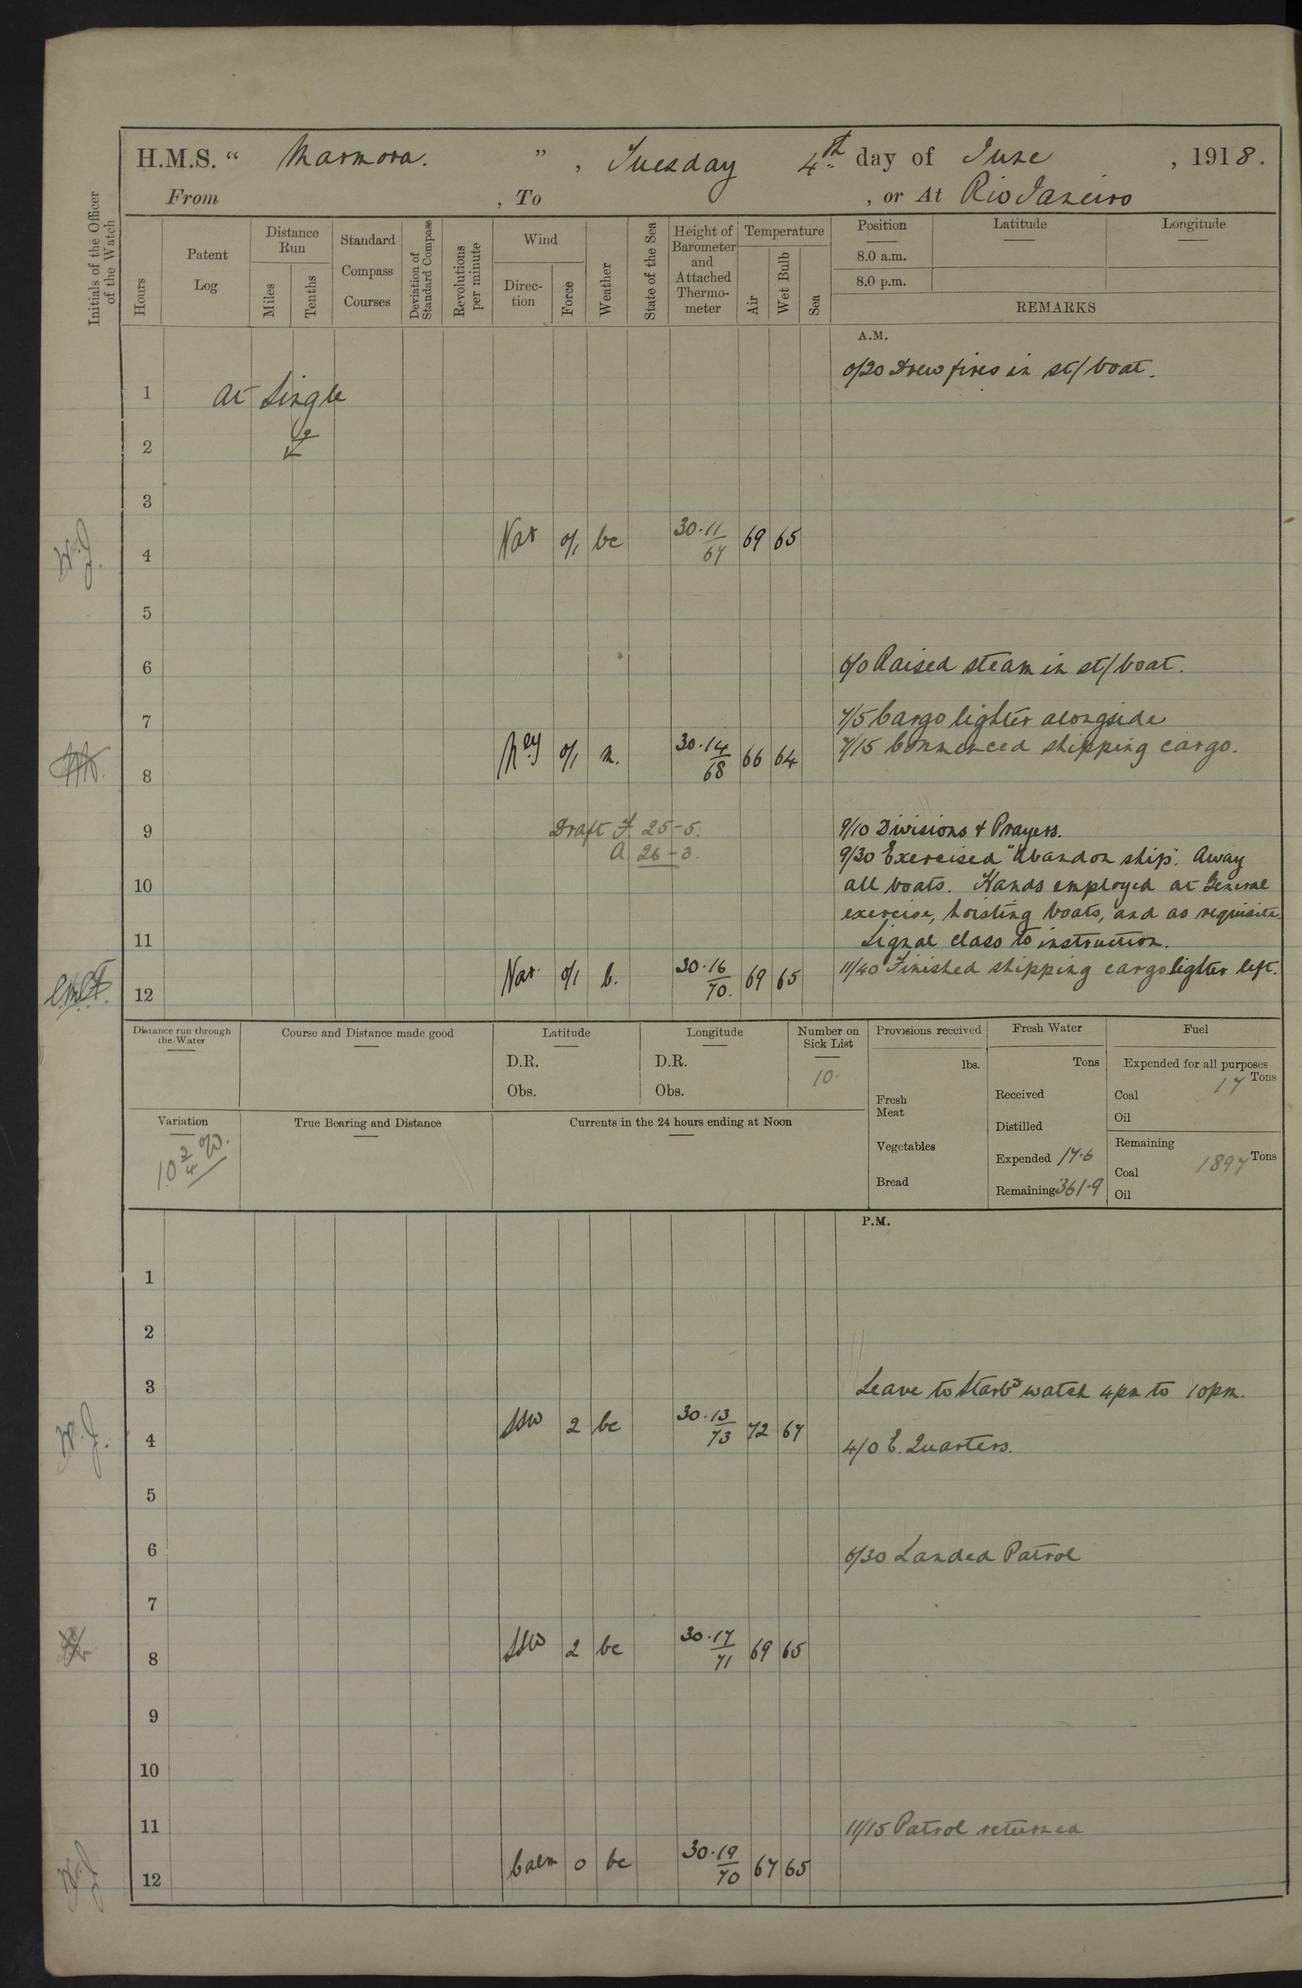 H.M.S. “ Marmora. ” , Tuesday 4th day of June , 1918.
From , To , or At Rio Janeiro
Initials of the Officer of the Watch
Hours
Patent Log
Distance Run
Miles
Tenths
Standard Compass Courses
Deviation of Standard Compass
Revolutions per minute
Wind
Direction
Force
Weather
State of the Sea
Height of Barometer and Attached Thermometer
Temperature
Air
Wet Bulb
Sea
Position
8.0 a.m.
8.0 p.m.
Latitude
Longitude
REMARKS
A.M.
0/20 Drew fires in st/boat.
1 At Single
2
3
4 Var 0/1 bc 30.11/67 69 65
5
6 6/0 Raised steam in st/boat.
7 7/5 Cargo lighter alongside
7/15 Commenced shipping cargo.
8 Nely 0/1 m. 30.14/68 66 64
9 Draft F. 25-5. 9/10 Divisions & Prayers.
A. 26-3. 9/30 Exercised "Abandon ship". Away
10 all boats. Hands employed at General
exercise, hoisting boats, and as requisite.
11 Signal class to instruction.
11/40 Finished shipping cargo lighter left.
12 Var. 0/1 b. 30.16/70. 69 65
Distance run through the Water
Course and Distance made good
Latitude
D.R.
Obs.
Longitude
D.R.
Obs.
Number on Sick List
10.
Provisions received
lbs.
Fresh Meat
Vegetables
Bread
Fresh Water
Tons
Received
Distilled
Expended 17.6
Remaining 361.9
Fuel
Expended for all purposes
Coal 17 Tons
Oil
Remaining
Coal 1897 Tons
Oil
Variation
10 3/4 W.
True Bearing and Distance
Currents in the 24 hours ending at Noon
P.M.
1
2
3 Leave to Starbd watch 4pm to 10pm.
4 SSW 2 bc 30.13/73 72 67 4/0 E. Quarters.
5
6 6/30 Landed Patrol
7
8 SSW 2 bc 30.17/71 69 65
9
10
11 11/15 Patrol returned
12 Calm 0 bc 30.19/70 67 65